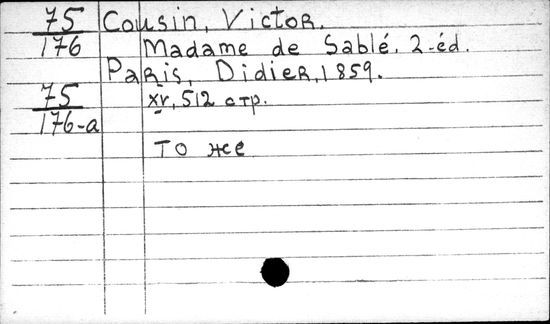 75 Cousin, Victor.
176 Madame de Sablé. 2-éd.
Paris, Didier, 1859.
75 xv, 512 стр.
176-a
То же